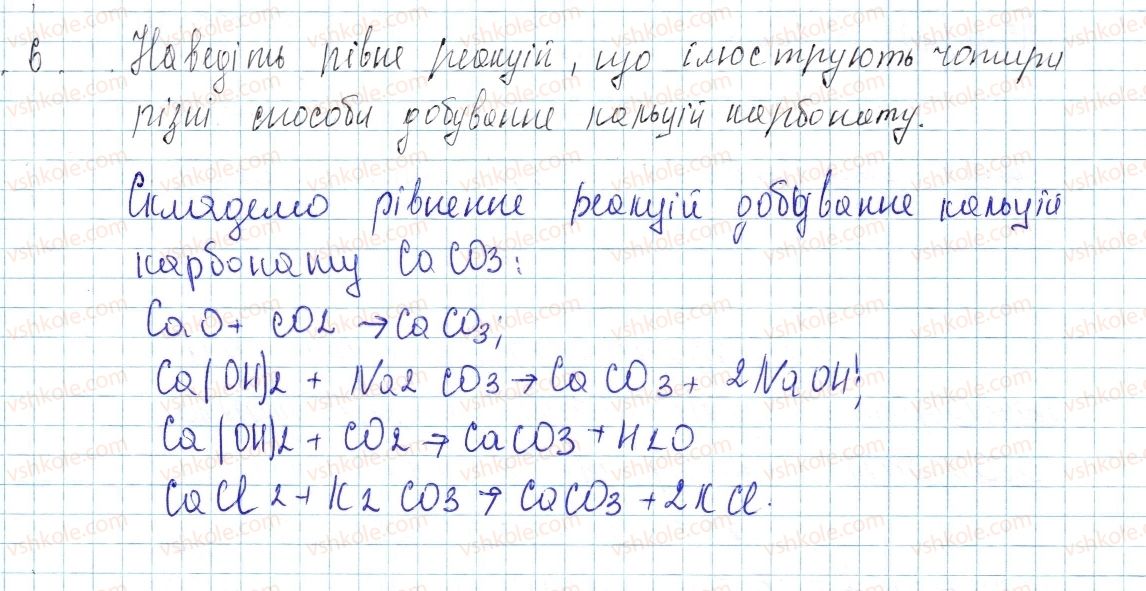 6. Наведіть рівне реакцій, що ілюструють чотири
різні способи добування кальцій карбонату.
Складемо рівненне реакцій добування кальцій
карбонату CaCO3:
CaO + CO2 → CaCO3;
Ca(OH)2 + Na2CO3 → CaCO3 + 2NaOH;
Ca(OH)2 + CO2 → CaCO3 + H2O
CaCl2 + K2CO3 → CaCO3 + 2KCl.